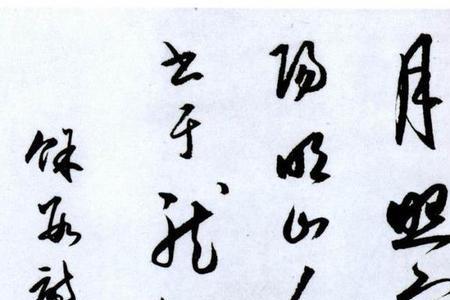 月照
陽明山人
書于龍
餘